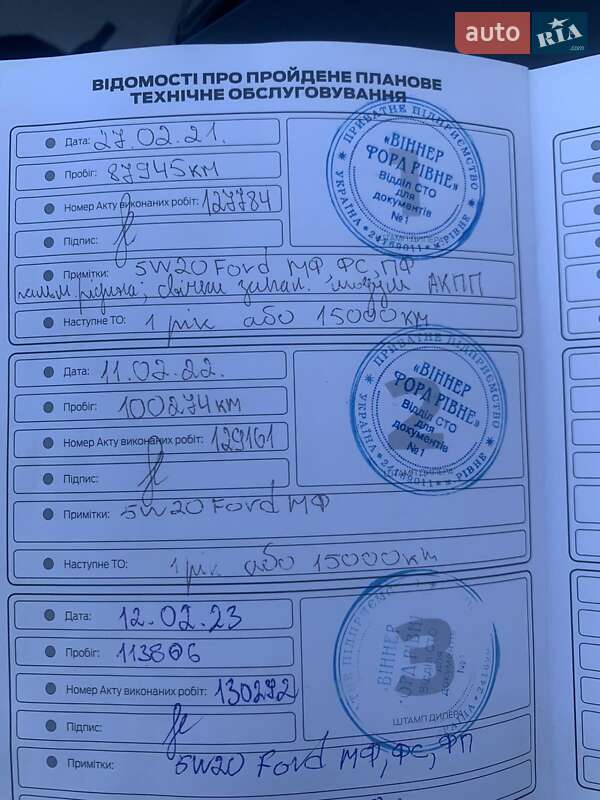 auto RIA .com
ВІДОМОСТІ ПРО ПРОЙДЕНЕ ПЛАНОВЕ
ТЕХНІЧНЕ ОБСЛУГОВУВАННЯ
Дата: 27.02.21.
Пробіг: 87945км
Номер Акту виконаних робіт: 127784
Підпис:
ПРИВАТНЕ ПІДПРИЄМСТВО
«ВІННЕР
ФОРД РІВНЕ»
Відділ СТО
для
документів
№1
УКРАЇНА * 24169011 * м.РІВНЕ *
ШТАМП ДИЛЕРА
Примітки: 5W20 Ford МФ, ФС, ПФ
гальм. рідина; свічки запал. АКПП
Наступне ТО: 1 рік або 15000км
Дата: 11.02.22.
Пробіг: 100274км
Номер Акту виконаних робіт: 129161
Підпис:
ПРИВАТНЕ ПІДПРИЄМСТВО
«ВІННЕР
ФОРД РІВНЕ»
Відділ СТО
для
документів
№1
УКРАЇНА * 24169011 * м.РІВНЕ *
Примітки: 5W20 Ford МФ
Наступне ТО: 1 рік або 15000км
Дата: 12.02.23
Пробіг: 113806
Номер Акту виконаних робіт: 130272
Підпис:
3
«ВІННЕР
ШТАМП ДИЛЕРА
Примітки: 5W20 Ford МФ, ФС, ФП